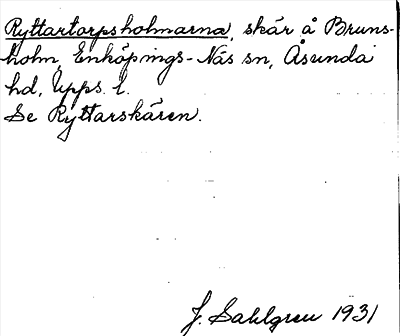 Ryttartorpsholmarna, skär å Bruns-
holm, Enköpings-Näs sn, Åsunda
hd, Upps. l.
Se Ryttarskären.
J. Sahlgren 1931